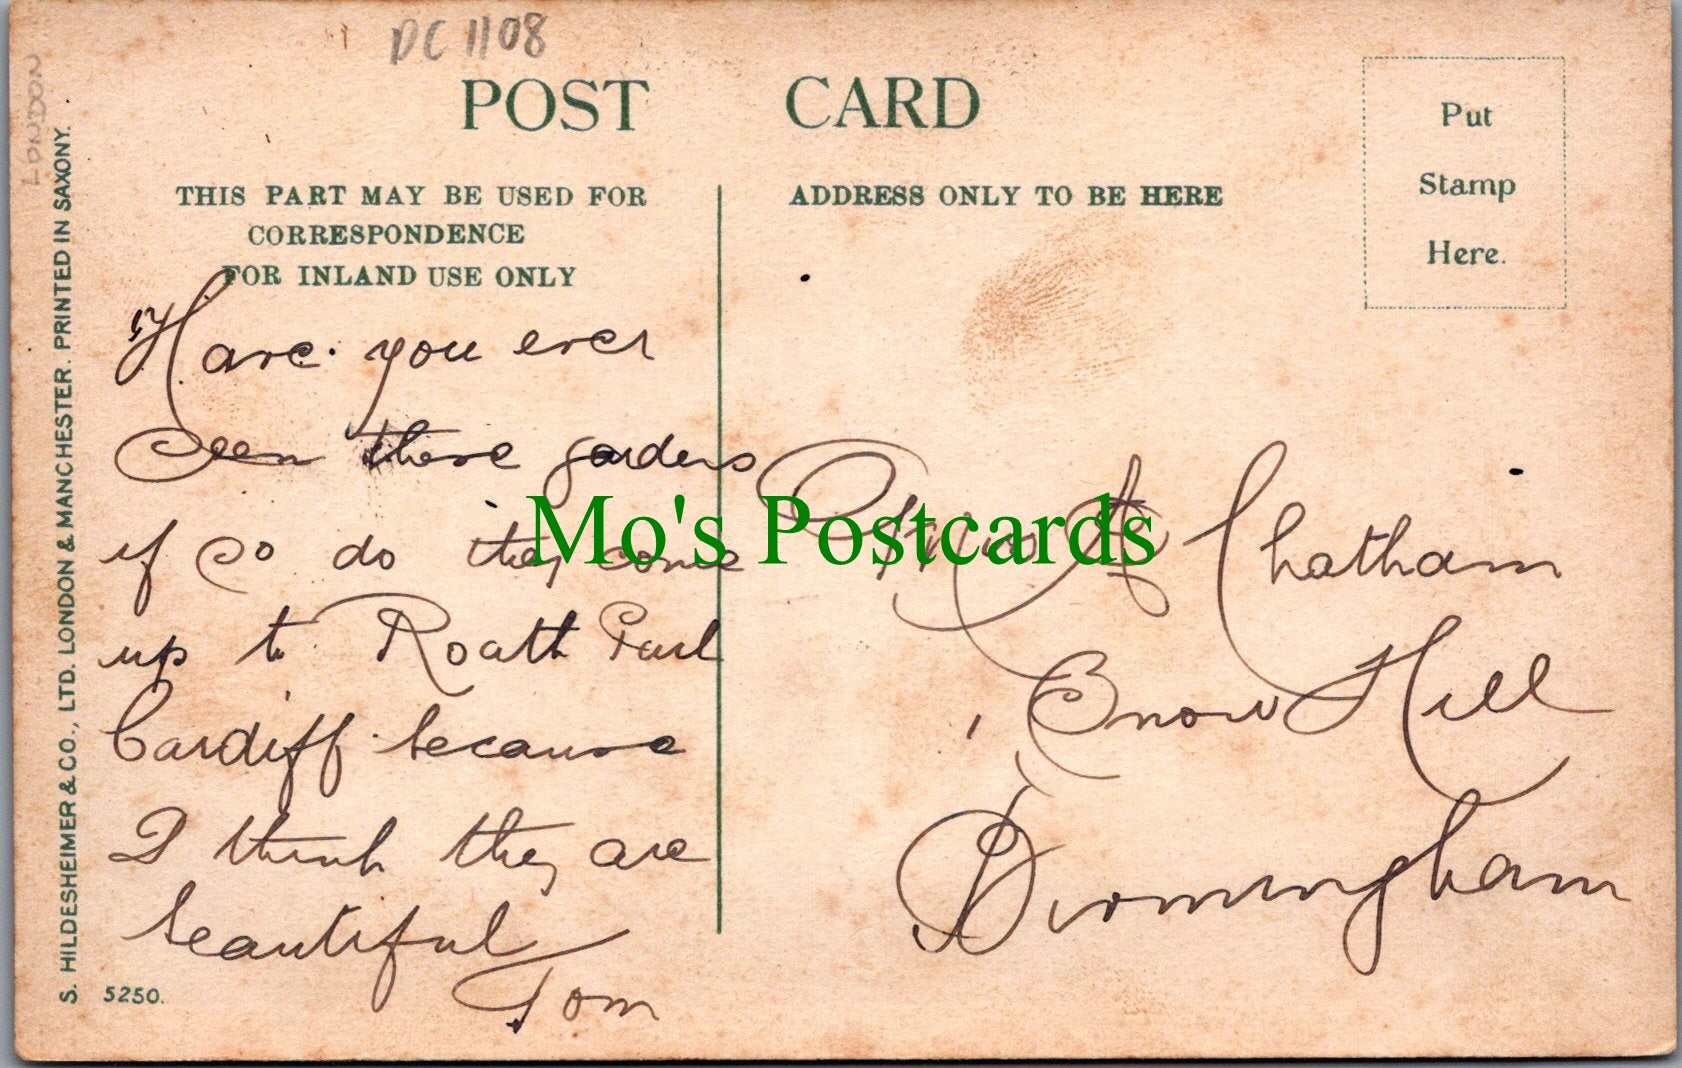 DC 1108
POST CARD
THIS PART MAY BE USED FOR
CORRESPONDENCE
FOR INLAND USE ONLY
ADDRESS ONLY TO BE HERE
Put
Stamp
Here.
LONDON
S. HILDESHEIMER & CO., LTD. LONDON & MANCHESTER. PRINTED IN SAXONY.
5250.
Have you ever
seen these gardens
if so do they come
up to Roath Park
Cardiff because
I think they are
beautiful
Tom
A Chatham
Snow Hill
Birmingham
Mo's Postcards